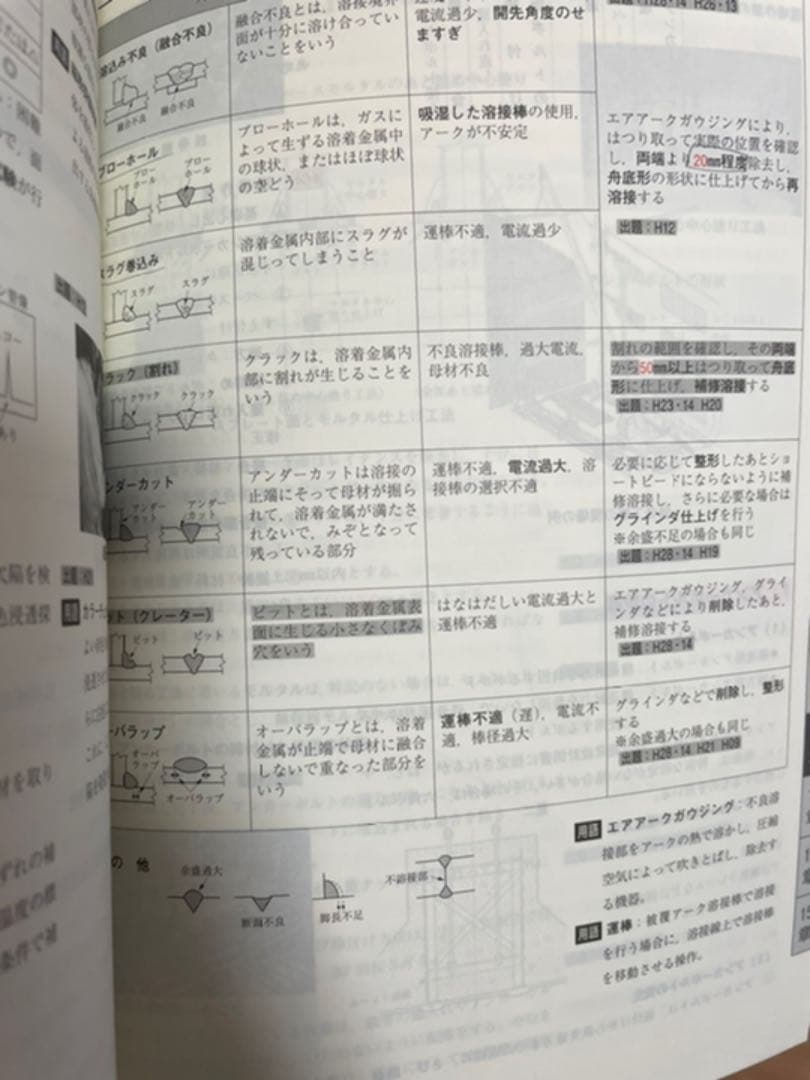 融合不良とは、溶接境界
面が十分に溶け合ってい
ないことをいう
電流過少、開先角度のせ
ますぎ
溶込み不良（融合不良）
融合不良
融合不良
ブローホール
ブロー
ホール
ブロー
ホール
ブローホールは、ガスに
よって生ずる溶着金属中
の球状、またはほぼ球状
の空どう
吸湿した溶接棒の使用、
アークが不安定
エアアークガウジングにより、
はつり取って実際の位置を確認
し、両端より20mm程度除去し、
舟底形の形状に仕上げてから再
溶接する
出題：H12
スラグ巻込み
スラグ
スラグ
溶着金属内部にスラグが
混じってしまうこと
運棒不適、電流過少
ラック（割れ）
クラック
クラック
クラックは、溶着金属内
部に割れが生じることを
いう
不良溶接棒、過大電流、
母材不良
割れの範囲を確認し、その両端
から50mm以上はつり取って舟底
形に仕上げ、補修溶接する
出題：H23・14 H20
ンダーカット
アンダー
カット
アンダー
カット
アンダーカットは溶接の
止端にそって母材が掘ら
れて、溶着金属が満たさ
れないで、みぞとなって
残っている部分
運棒不適、電流過大、溶
接棒の選択不適
必要に応じて整形したあとショ
ートビードにならないように補
修溶接し、さらに必要な場合は
グラインダ仕上げを行う
※余盛不足の場合も同じ
出題：H28・14 H19
ット（クレーター）
ピット
ピット
ピットとは、溶着金属表
面に生じる小さなくぼみ
穴をいう
はなはだしい電流過大と
運棒不適
エアアークガウジング、グライ
ンダなどにより削除したあと、
補修溶接する
出題：H28・14
ーバラップ
オーバ
ラップ
オーバラップ
オーバラップとは、溶着
金属が止端で母材に融合
しないで重なった部分を
いう
運棒不適（遅）、電流不
適、棒径過大
グラインダなどで削除し、整形
する
※余盛過大の場合も同じ
出題：H28・14 H21 H09
の 他
余盛過大
断面不良
脚長不足
不溶接部
用語 エアアークガウジング：不良溶
接部をアークの熱で溶かし、圧縮
空気によって吹きとばし、除去す
る機器。
用語 運棒：被覆アーク溶接棒で溶接
を行う場合に、溶接線上で溶接棒
を移動させる操作。